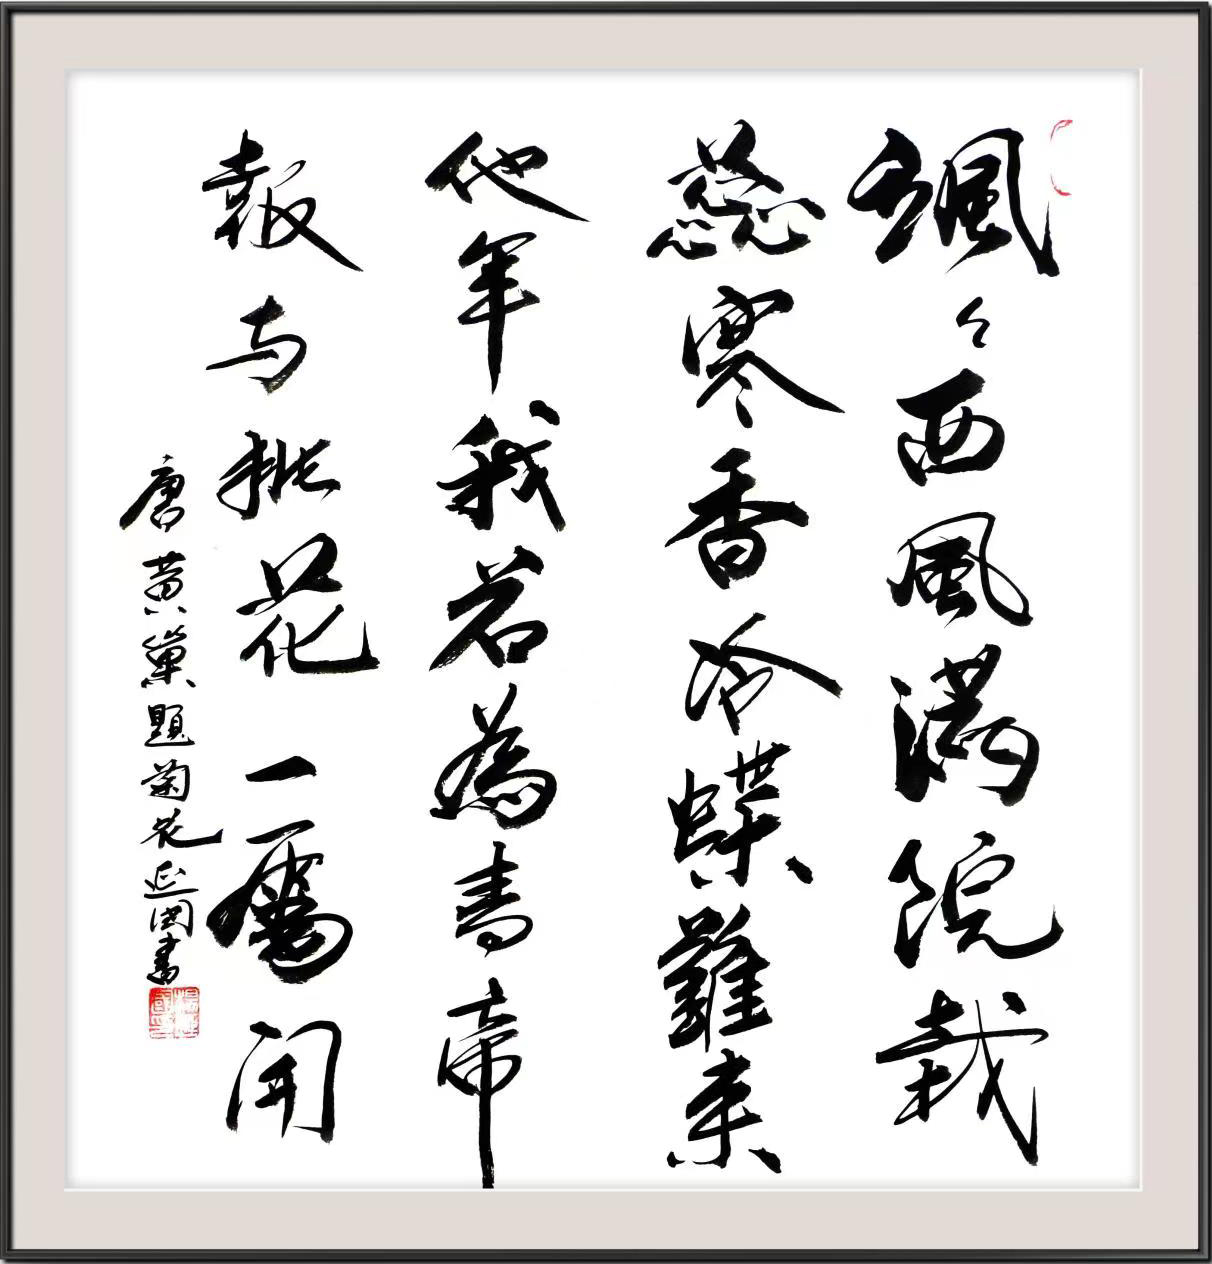 颯々西風滿院栽
蕊寒香冷蝶難來
他年我若為青帝
報与桃花一處開
唐黃巢題菊花延国書